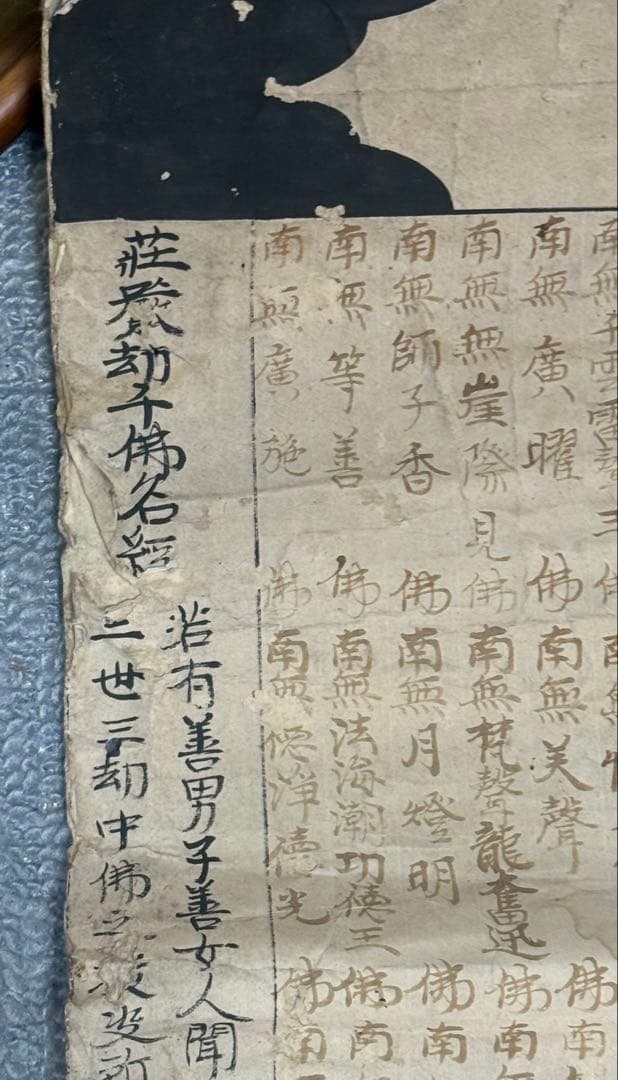 南無
南無廣曜
佛
南無美聲
佛
南
南無無崖際見佛
南無梵聲龍奮迅
佛
南無
南無師子香
佛
南無月燈明
佛
南
南無等善
佛
南無法海潮功德王
佛
南
南無廣施
佛
南無德淨德光
佛
南
莊嚴劫千佛名經
若有善男子善女人聞
三世三劫中佛之